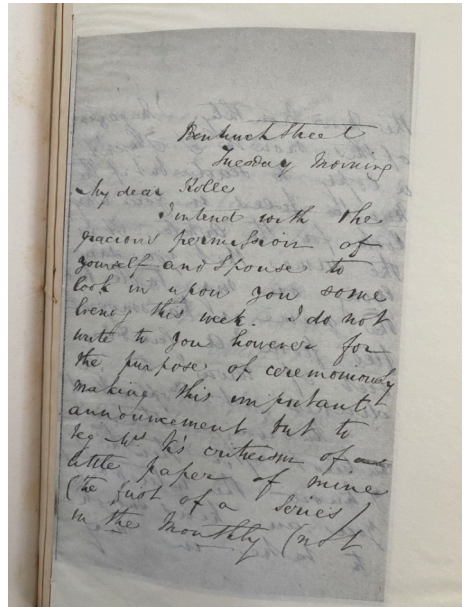 Bentinck Street
Tuesday Morning
My dear Kolle
I intend with the
gracious permission of
yourself and Spouse to
look in upon you some
Evening this week. I do not
write to you however for
the purpose of ceremoniously
making this important
announcement but to
beg Mrs K's criticism of a
little paper of mine
(the first of a Series)
in the Monthly (not